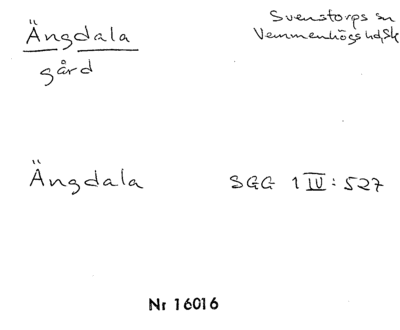 Ängdala
gård
Svenstorps sn
Vemmenhögs hd, Sk
Ängdala
SGG 1 IV: 527
Nr 16016